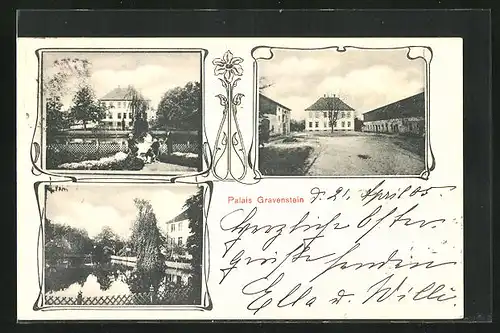 Palais Gravenstein
d. 21. April 05.
Herzliche Oster
grüße senden
Ella u. Willi.